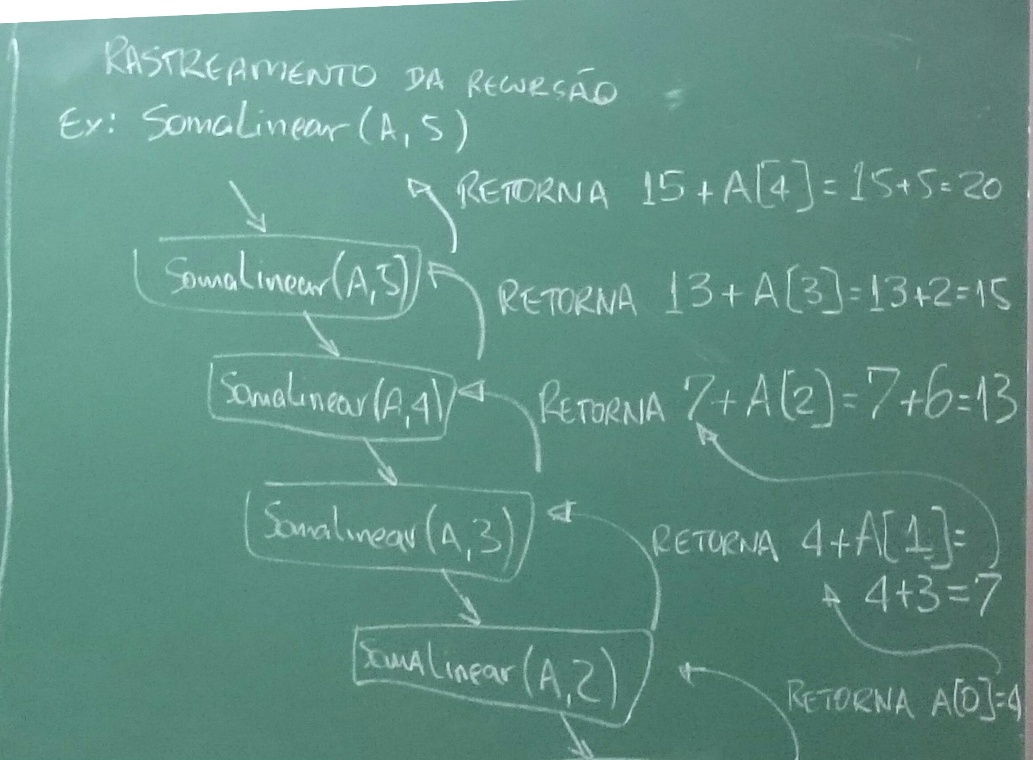 RASTREAMENTO DA RECURSÃO
Ex: SomaLinear(A,5)
RETORNA 15+A[4]=15+5=20
SomaLinear(A,5)
RETORNA 13+A[3]=13+2=15
SomaLinear(A,4)
RETORNA 7+A[2]=7+6=13
SomaLinear(A,3)
RETORNA 4+A[1]=
4+3=7
SomaLinear(A,2)
RETORNA A[0]=4